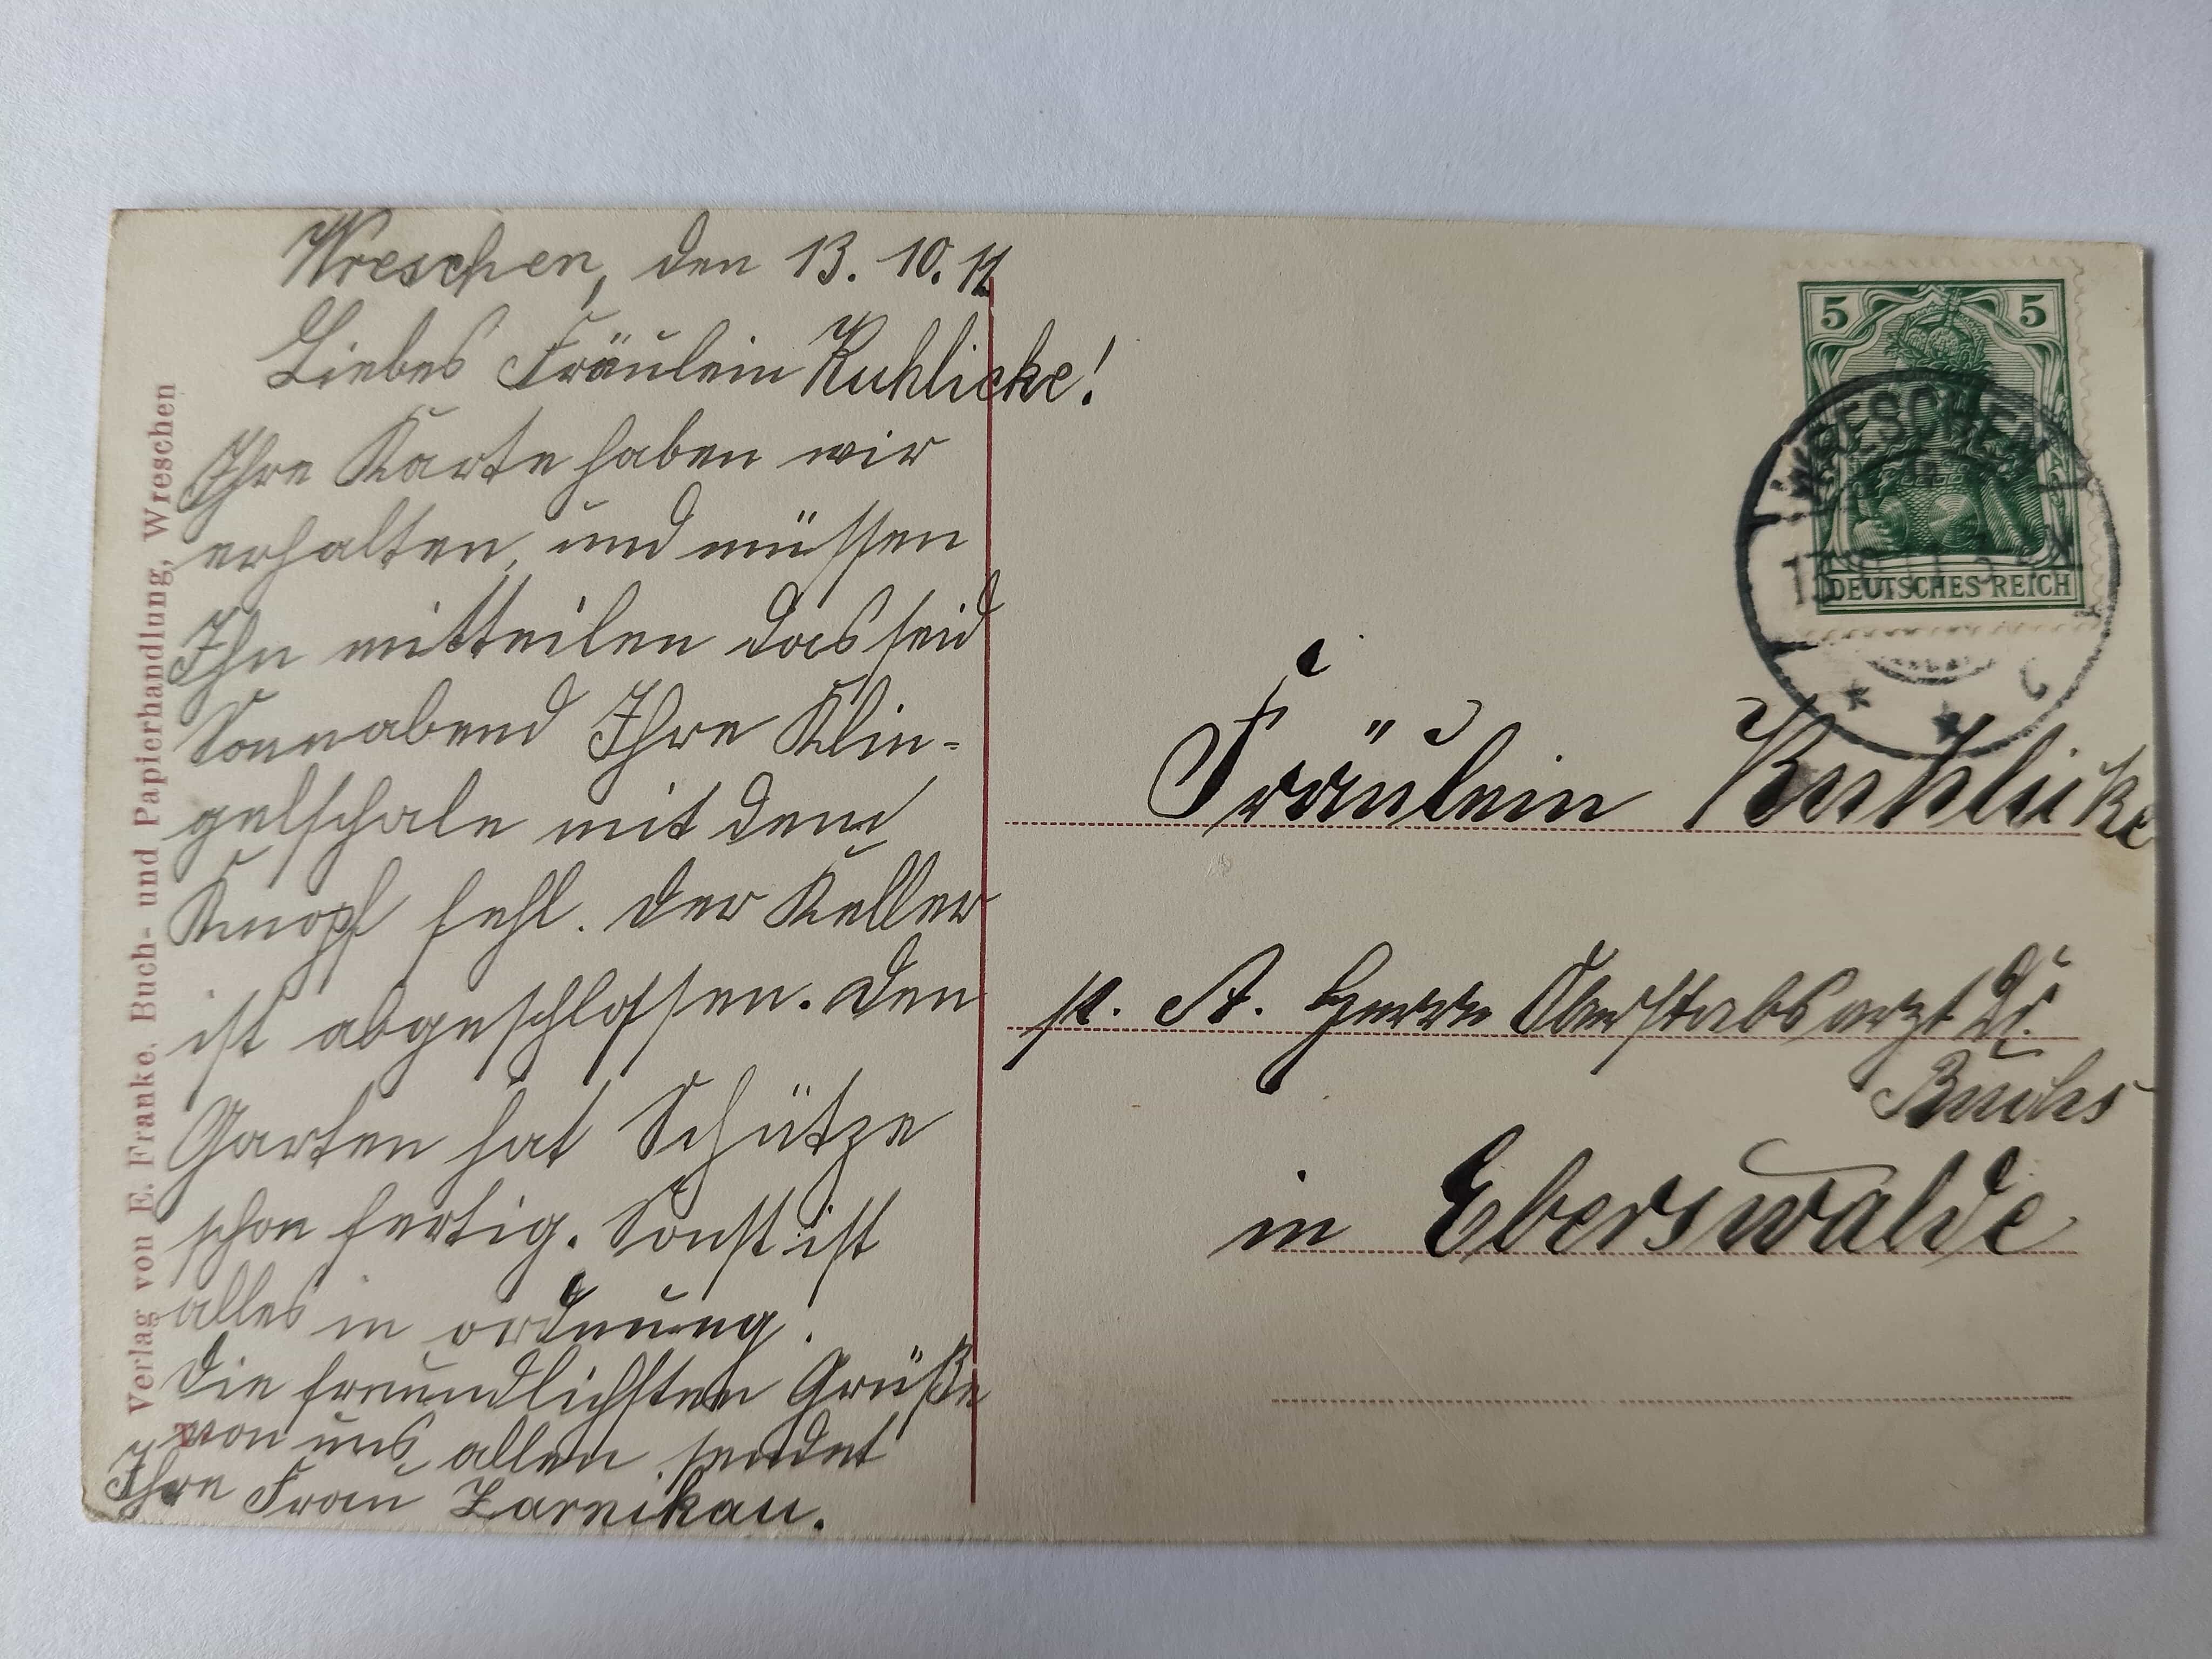 Wreschen, den 13. 10. 11
Liebes Fräulein Kuhlicke!
Ihre Karte haben wir
erhalten, und müssen
Ihn mitteilen das seid
Sonnabend Ihre Klin-
gelschale mit dem
Knopf fehl. der Keller
ist abgeschlossen. Den
Garten hat Schütze
schon fertig. Sonst ist
alles in ordnung.
Die freundlichsten Grüße
von uns allen sendet
Ihre Frau Zarnikau.
Verlag von E. Franke, Buch- und Papierhandlung, Wreschen
5 5
DEUTSCHES REICH
WRESCHEN
Fräulein Kuhlicke
p. A. Herrn Oberstabsarzt Dr.
in Eberswalde